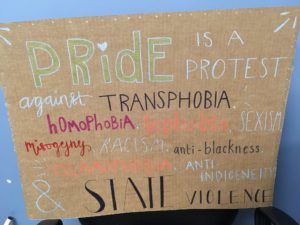 PRIDE IS A PROTEST
against TRANSPHOBIA,
HOMOPHOBIA, SEXISM
misogyny, RACISM, anti-blackness
ISLAMOPHOBIA, ANTI INDIGENEITY
& STATE VIOLENCE